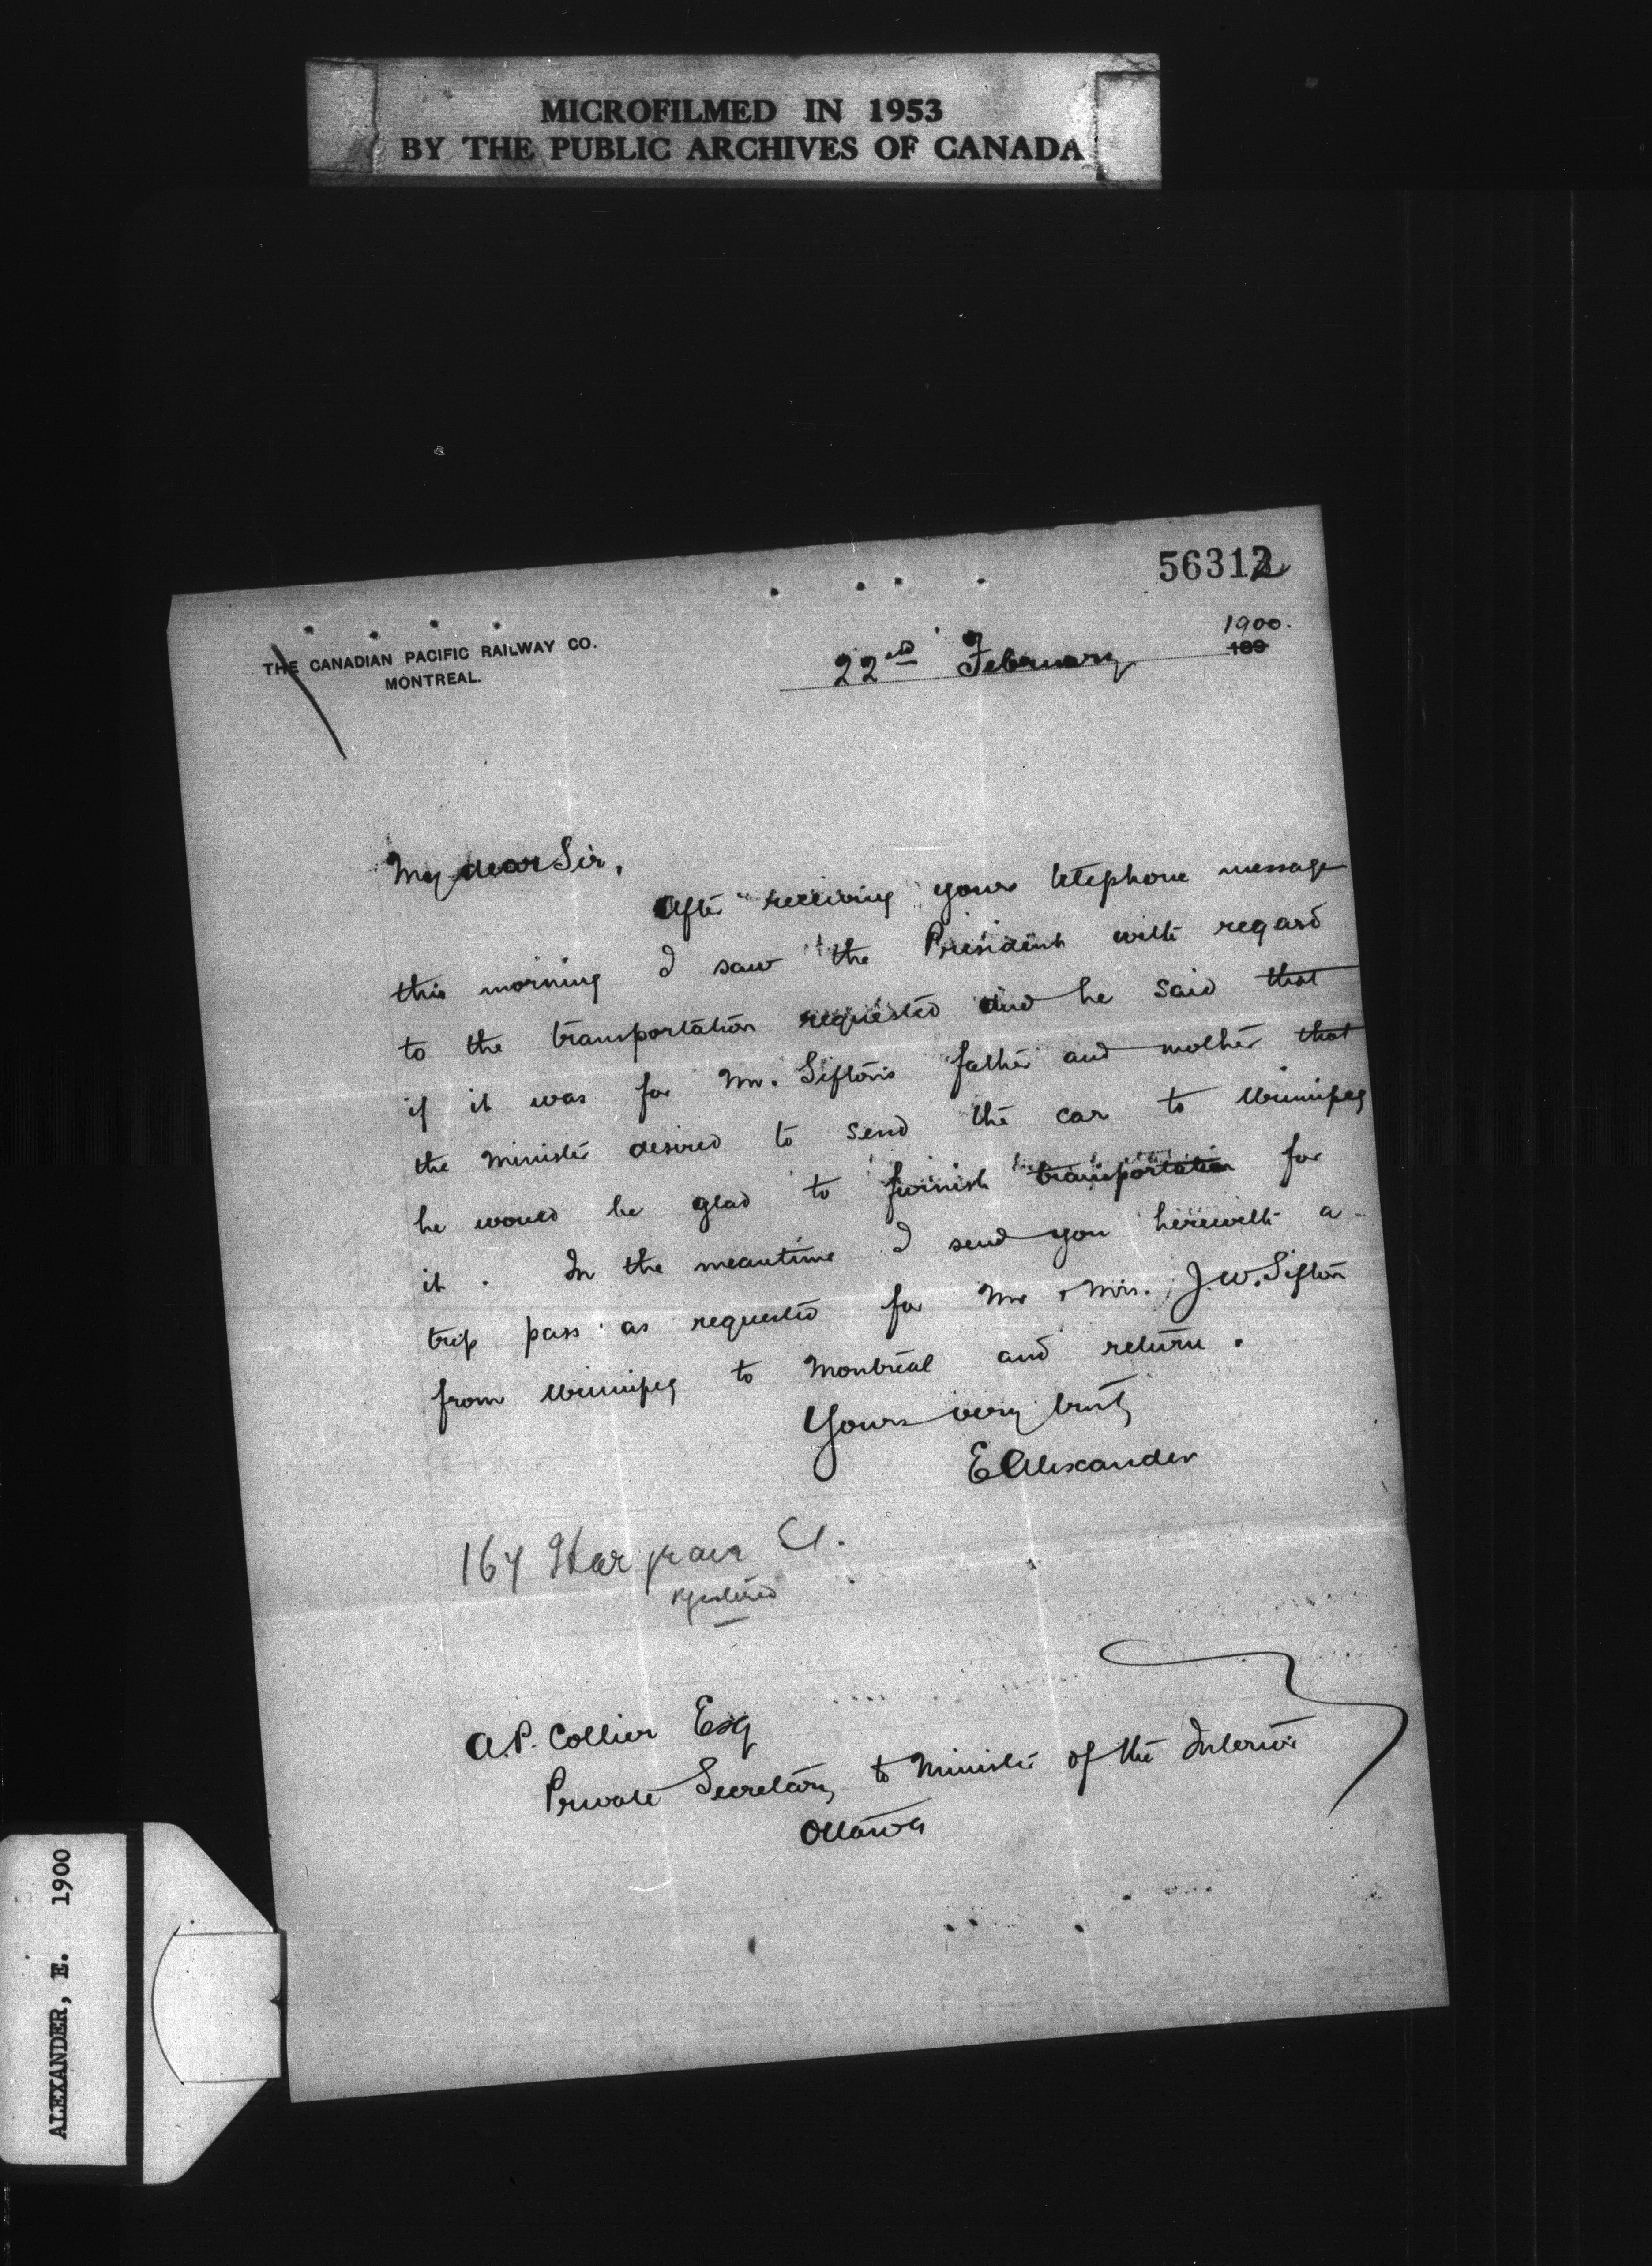 MICROFILMED IN 1953
BY THE PUBLIC ARCHIVES OF CANADA
56312
THE CANADIAN PACIFIC RAILWAY CO.
MONTREAL.
22nd February 1900.
189
My dear Sir,
After receiving your telephone message
this morning I saw the President with regard
to the transportation requested and he said that
if it was for Mr. Sifton's father and mother that
the Minister desired to send the car to Winnipeg
he would be glad to furnish transportation for
it. In the meantime I send you herewith a
trip pass as requested for Mr & Mrs. J.W. Sifton
from Winnipeg to Montreal and return.
Yours very truly
E Alexander
164 Hargrave St.
registered
A.P. Collier Esq
Private Secretary to Minister of the Interior
Ottawa
ALEXANDER, E. 1900